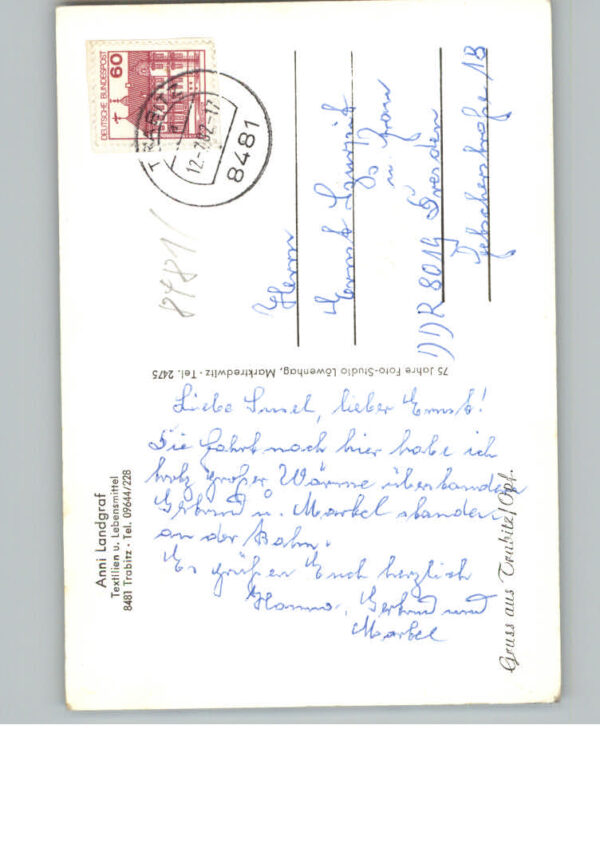 Anni Landgraf
Textilien u. Lebensmittel
8481 Trabitz · Tel. 09644/228
Gruss aus Trabitz/Opf.
75 Jahre Foto-Studio Löwenhag, Marktredwitz · Tel. 2475
DEUTSCHE BUNDESPOST
60
TRABITZ
12.-7.82-17
8481
8481/
Herrn
Ernst
u. Frau
DDR 8019 Dresden
18
Liebe Susel, lieber Ernst!
Die Fahrt nach hier habe ich
trotz großer Wärme überstanden
Gertrud u. Markel standen
an der Bahn.
Es grüßen Euch herzlich
Hanna, Gertrud und
Markel